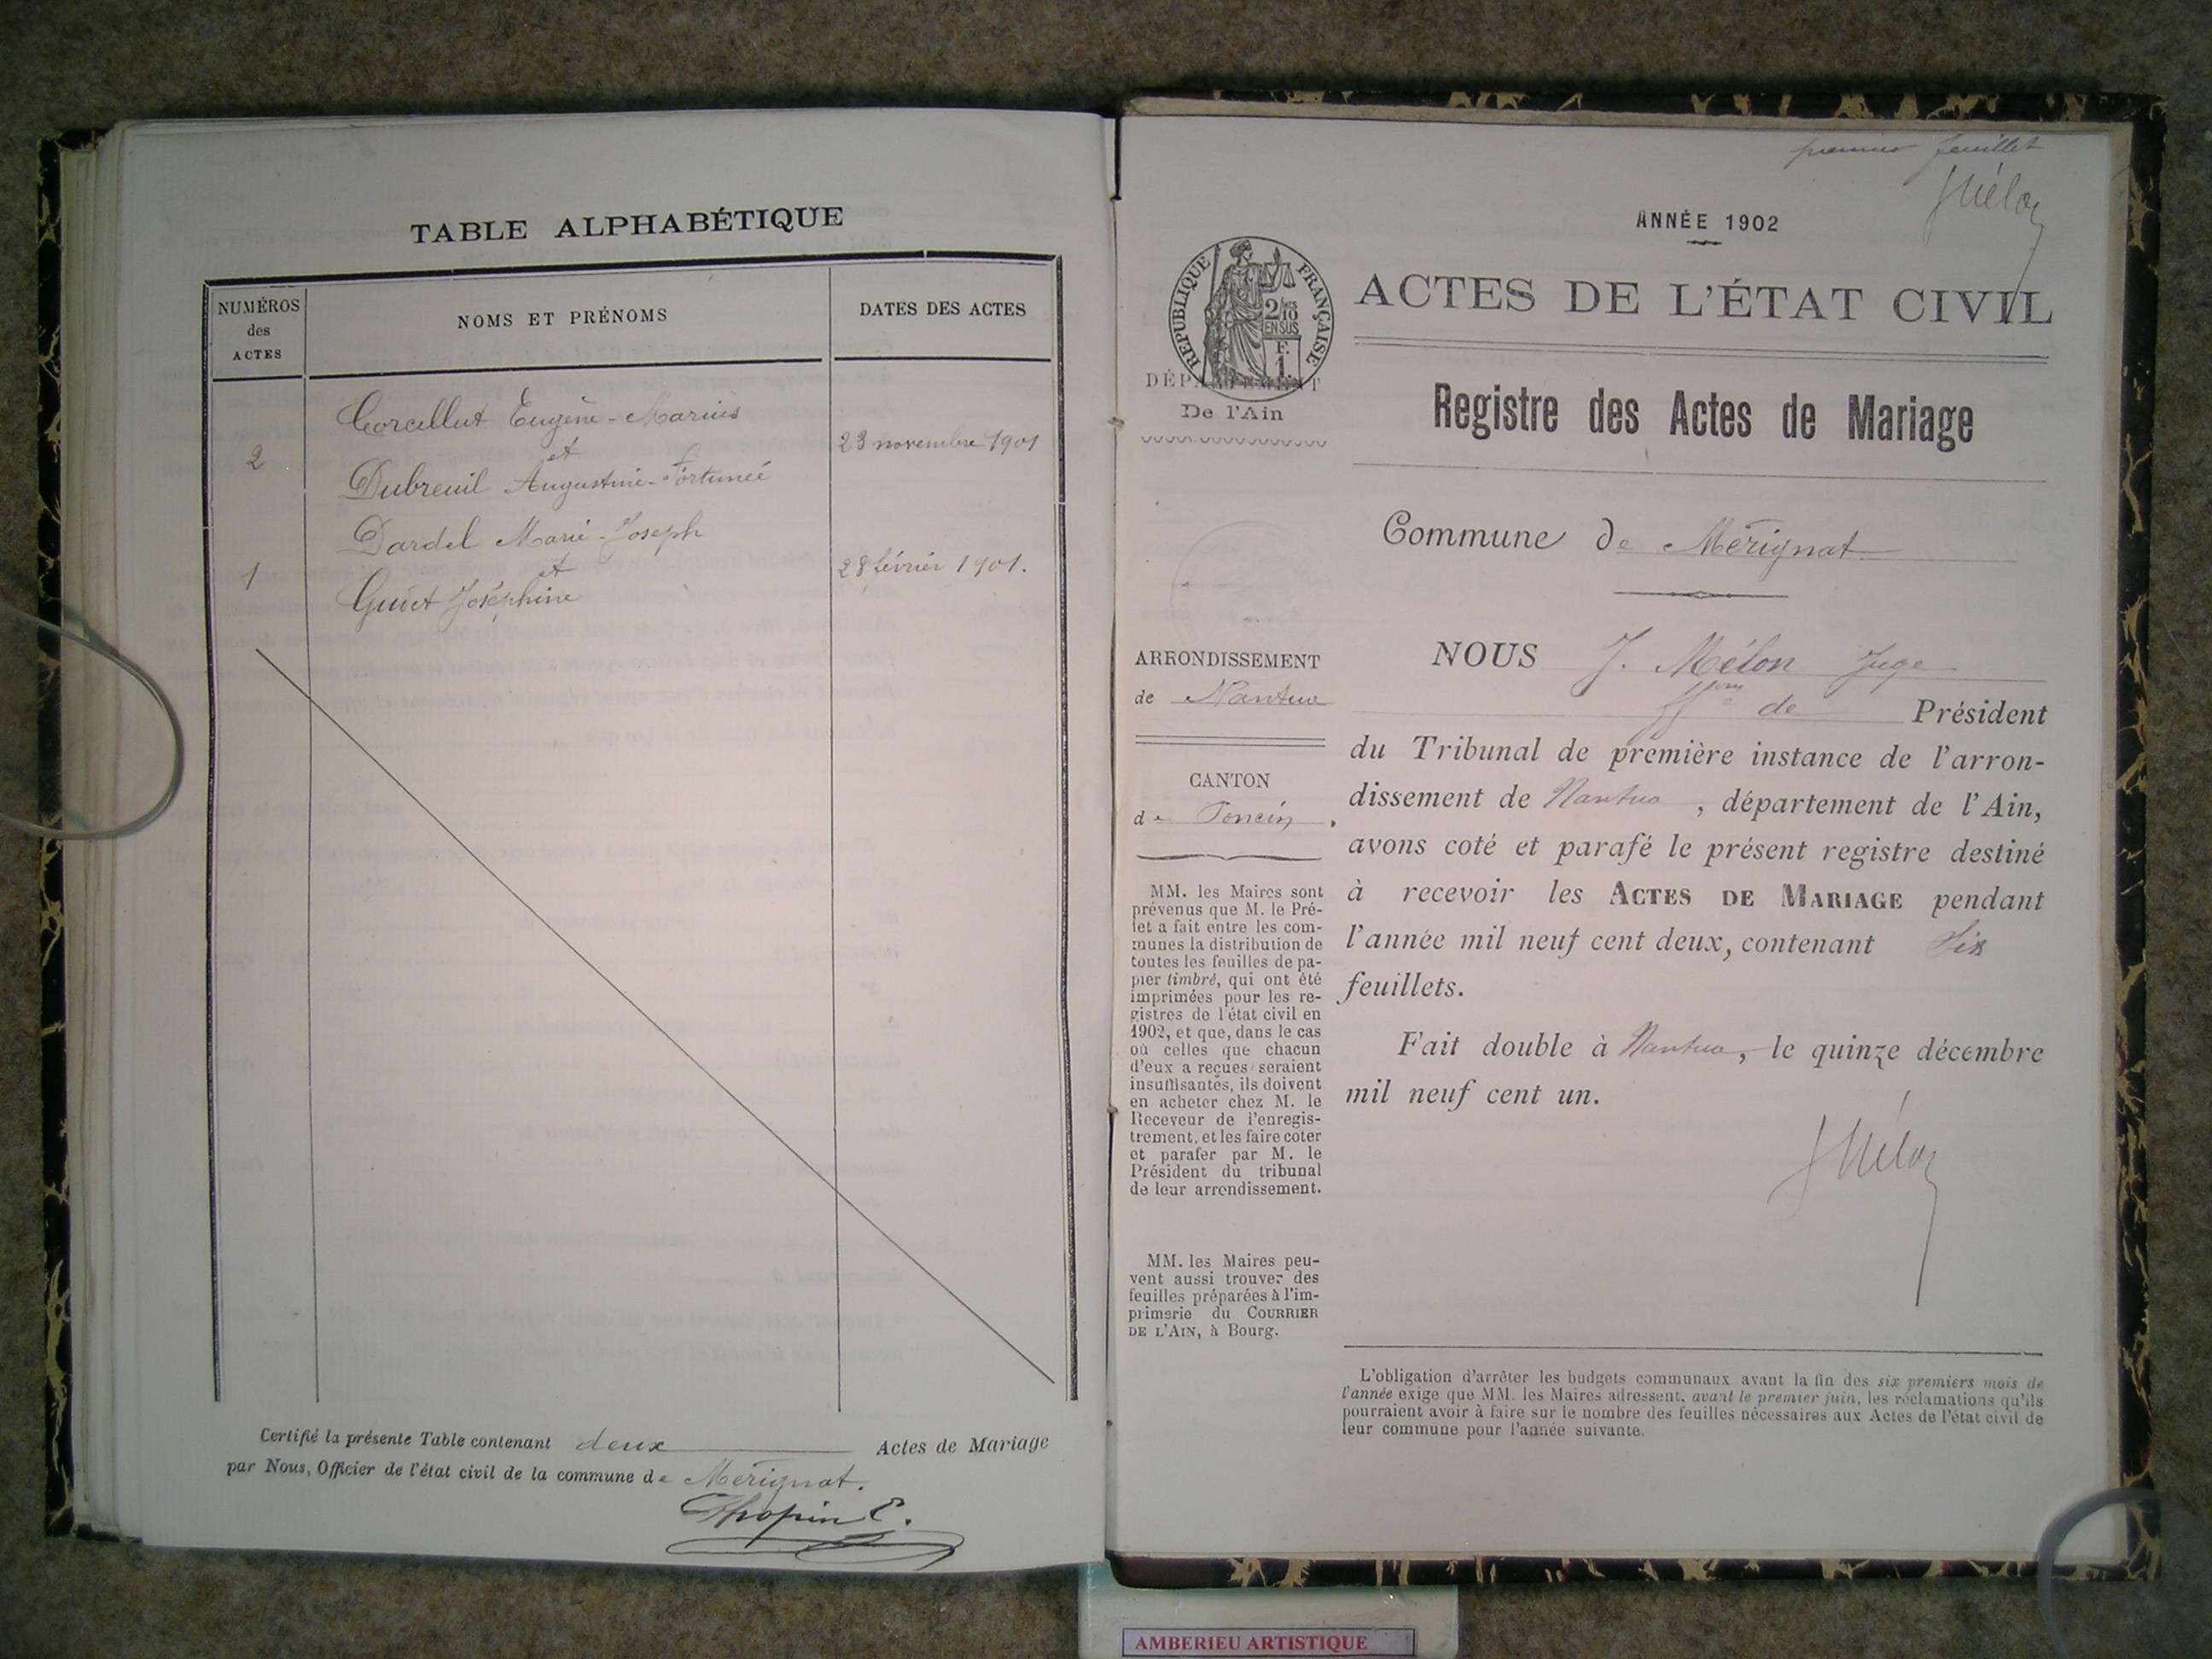 TABLE ALPHABÉTIQUE
NUMÉROS
des
ACTES
NOMS ET PRÉNOMS
DATES DES ACTES
2
Corcellut Eugène-Marius
et
Dubreuil Augustine-Fortunée
23 novembre 1901
1
Dardel Marie-Joseph
et
Guiet Joséphine
28 février 1901.
Certifié la présente Table contenant deux Actes de Mariage
par Nous, Officier de l'état civil de la commune de Mérignat.
Chopin E.
premier feuillet
JMélon
ANNÉE 1902
RÉPUBLIQUE FRANÇAISE
2/10
EN SUS
F.
1.
ACTES DE L'ÉTAT CIVIL
DÉPARTEMENT
De l'Ain
Registre des Actes de Mariage
Commune de Mérignat
ARRONDISSEMENT
de Nantua
CANTON
de Poncin,
MM. les Maires sont
prévenus que M. le Pré-
fet a fait entre les com-
munes la distribution de
toutes les feuilles de pa-
pier timbré, qui ont été
imprimées pour les re-
gistres de l'état civil en
1902, et que, dans le cas
où celles que chacun
d'eux a reçues seraient
insuffisantes, ils doivent
en acheter chez M. le
Receveur de l'enregis-
trement, et les faire coter
et parafer par M. le
Président du tribunal
de leur arrondissement.
MM. les Maires peu-
vent aussi trouver des
feuilles préparées à l'im-
primerie du COURRIER
DE L'AIN, à Bourg.
NOUS J. Mélon Juge
ffons de Président
du Tribunal de première instance de l'arron-
dissement de Nantua, département de l'Ain,
avons coté et parafé le présent registre destiné
à recevoir les ACTES DE MARIAGE pendant
l'année mil neuf cent deux, contenant Six
feuillets.
Fait double à Nantua, le quinze décembre
mil neuf cent un.
JMélon
L'obligation d'arrêter les budgets communaux avant la fin des six premiers mois de
l'année exige que MM. les Maires adressent, avant le premier juin, les réclamations qu'ils
pourraient avoir à faire sur le nombre des feuilles nécessaires aux Actes de l'état civil de
leur commune pour l'année suivante.
AMBERIEU ARTISTIQUE